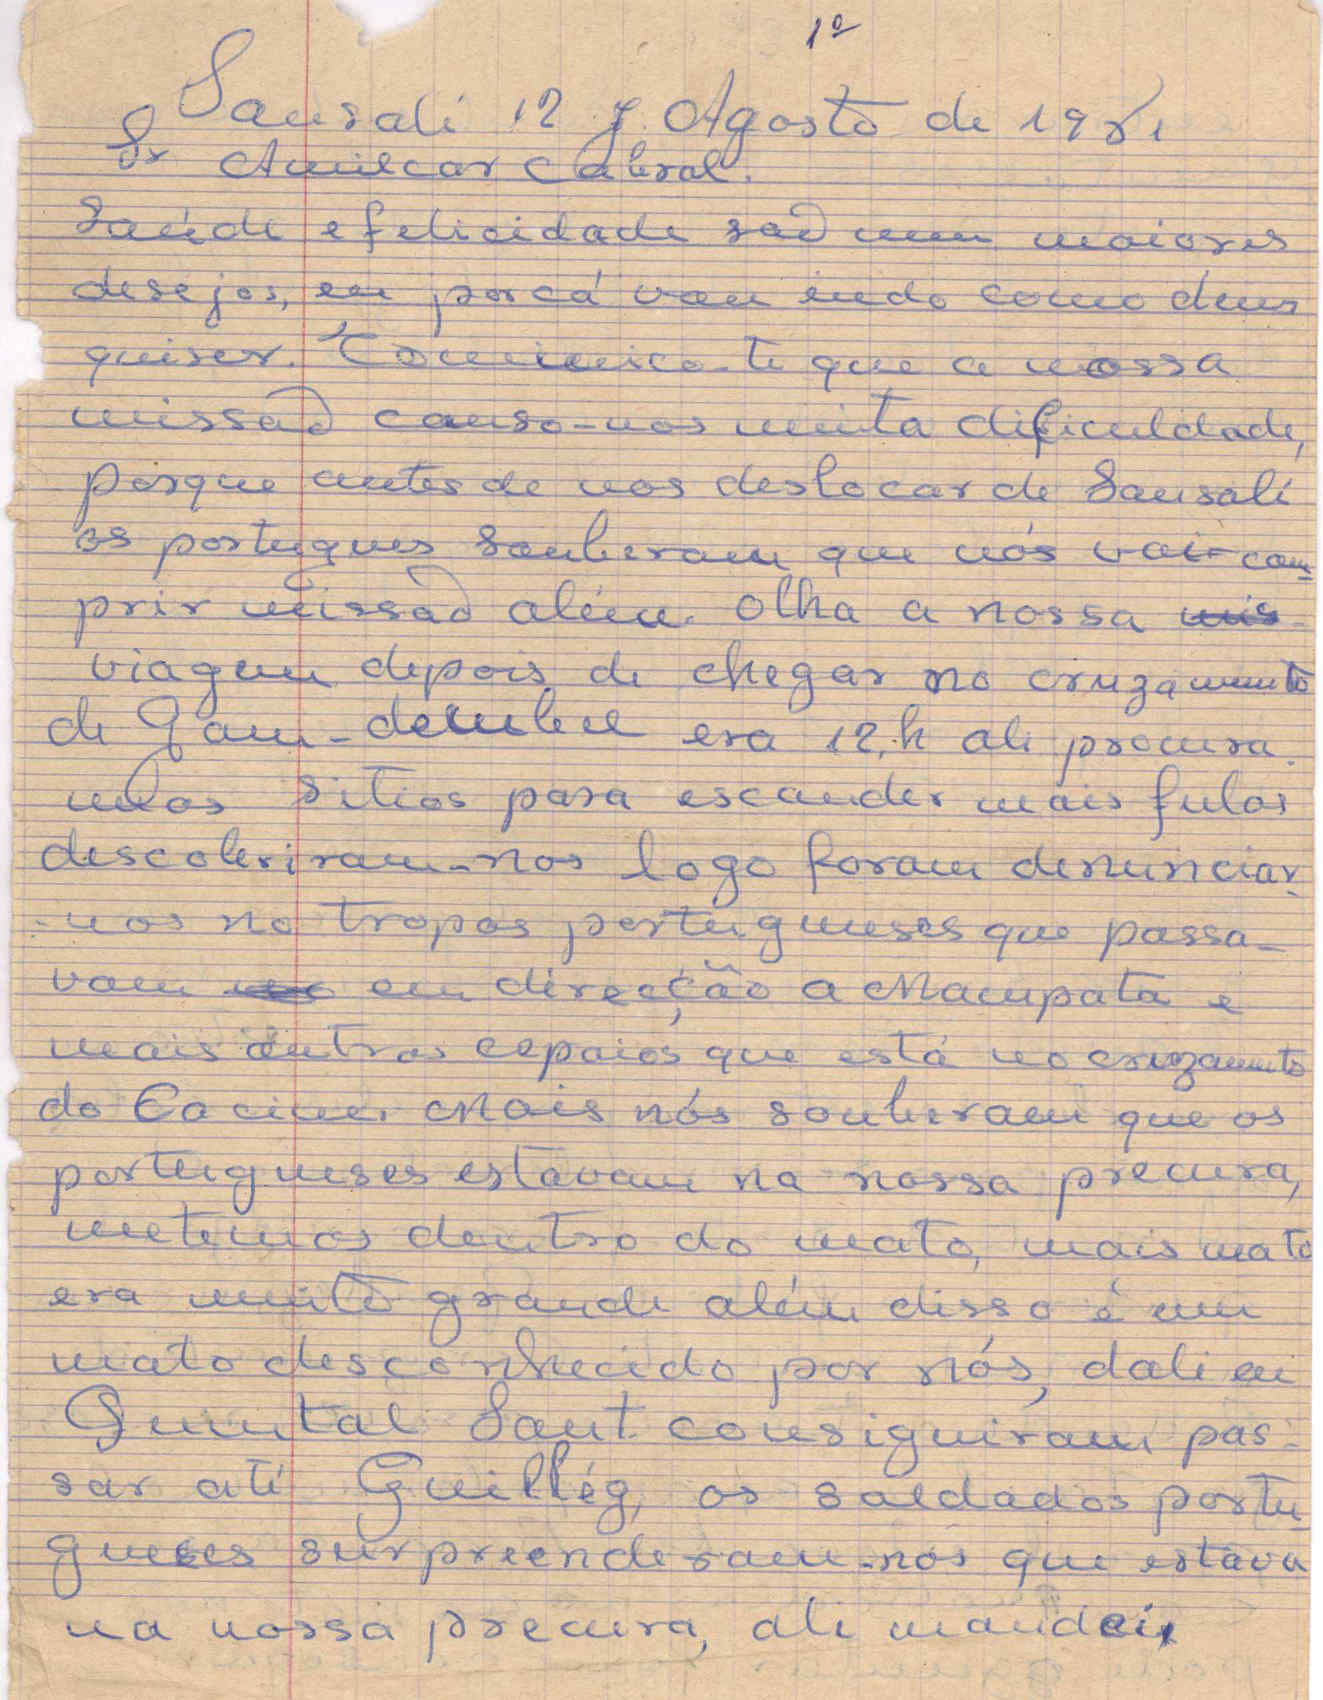 1º
Sansalé 12 Agosto de 1961
Sr Amilcar Cabral.
Saúde e felicidade saõ meu maiores
desejos, eu por cá vou indo como deus
quiser. Comunico-te que a nossa
missaõ causo-nos muita dificuldade,
porque antes de nos deslocar de Sansalé
os portugues souberam que nós vai com
prir missaõ além. Olha a nossa mis
viagem depois de chegar no cruzamento
de Gam-dembel era 12.h ali procura.
mos sitios para escander mais fulas
descoberiram-nos logo foram denunciar
-nos no tropas portugueses que passa-
vam em direcção a Mampata e
mais outros cepaios que está no cruzamento
do Cacine. Mais nós souberam que os
portugueses estavam na nossa precura,
metemos dentro do mato, mais mato
era muito grande além disso é um
mato desconhecido por nós, dali eu
Quintal Sant. consiguiram pas-
sar até Guillég, os saldados portu-
gueses surpreenderam-nos que estava
na nossa precura, ali mandei